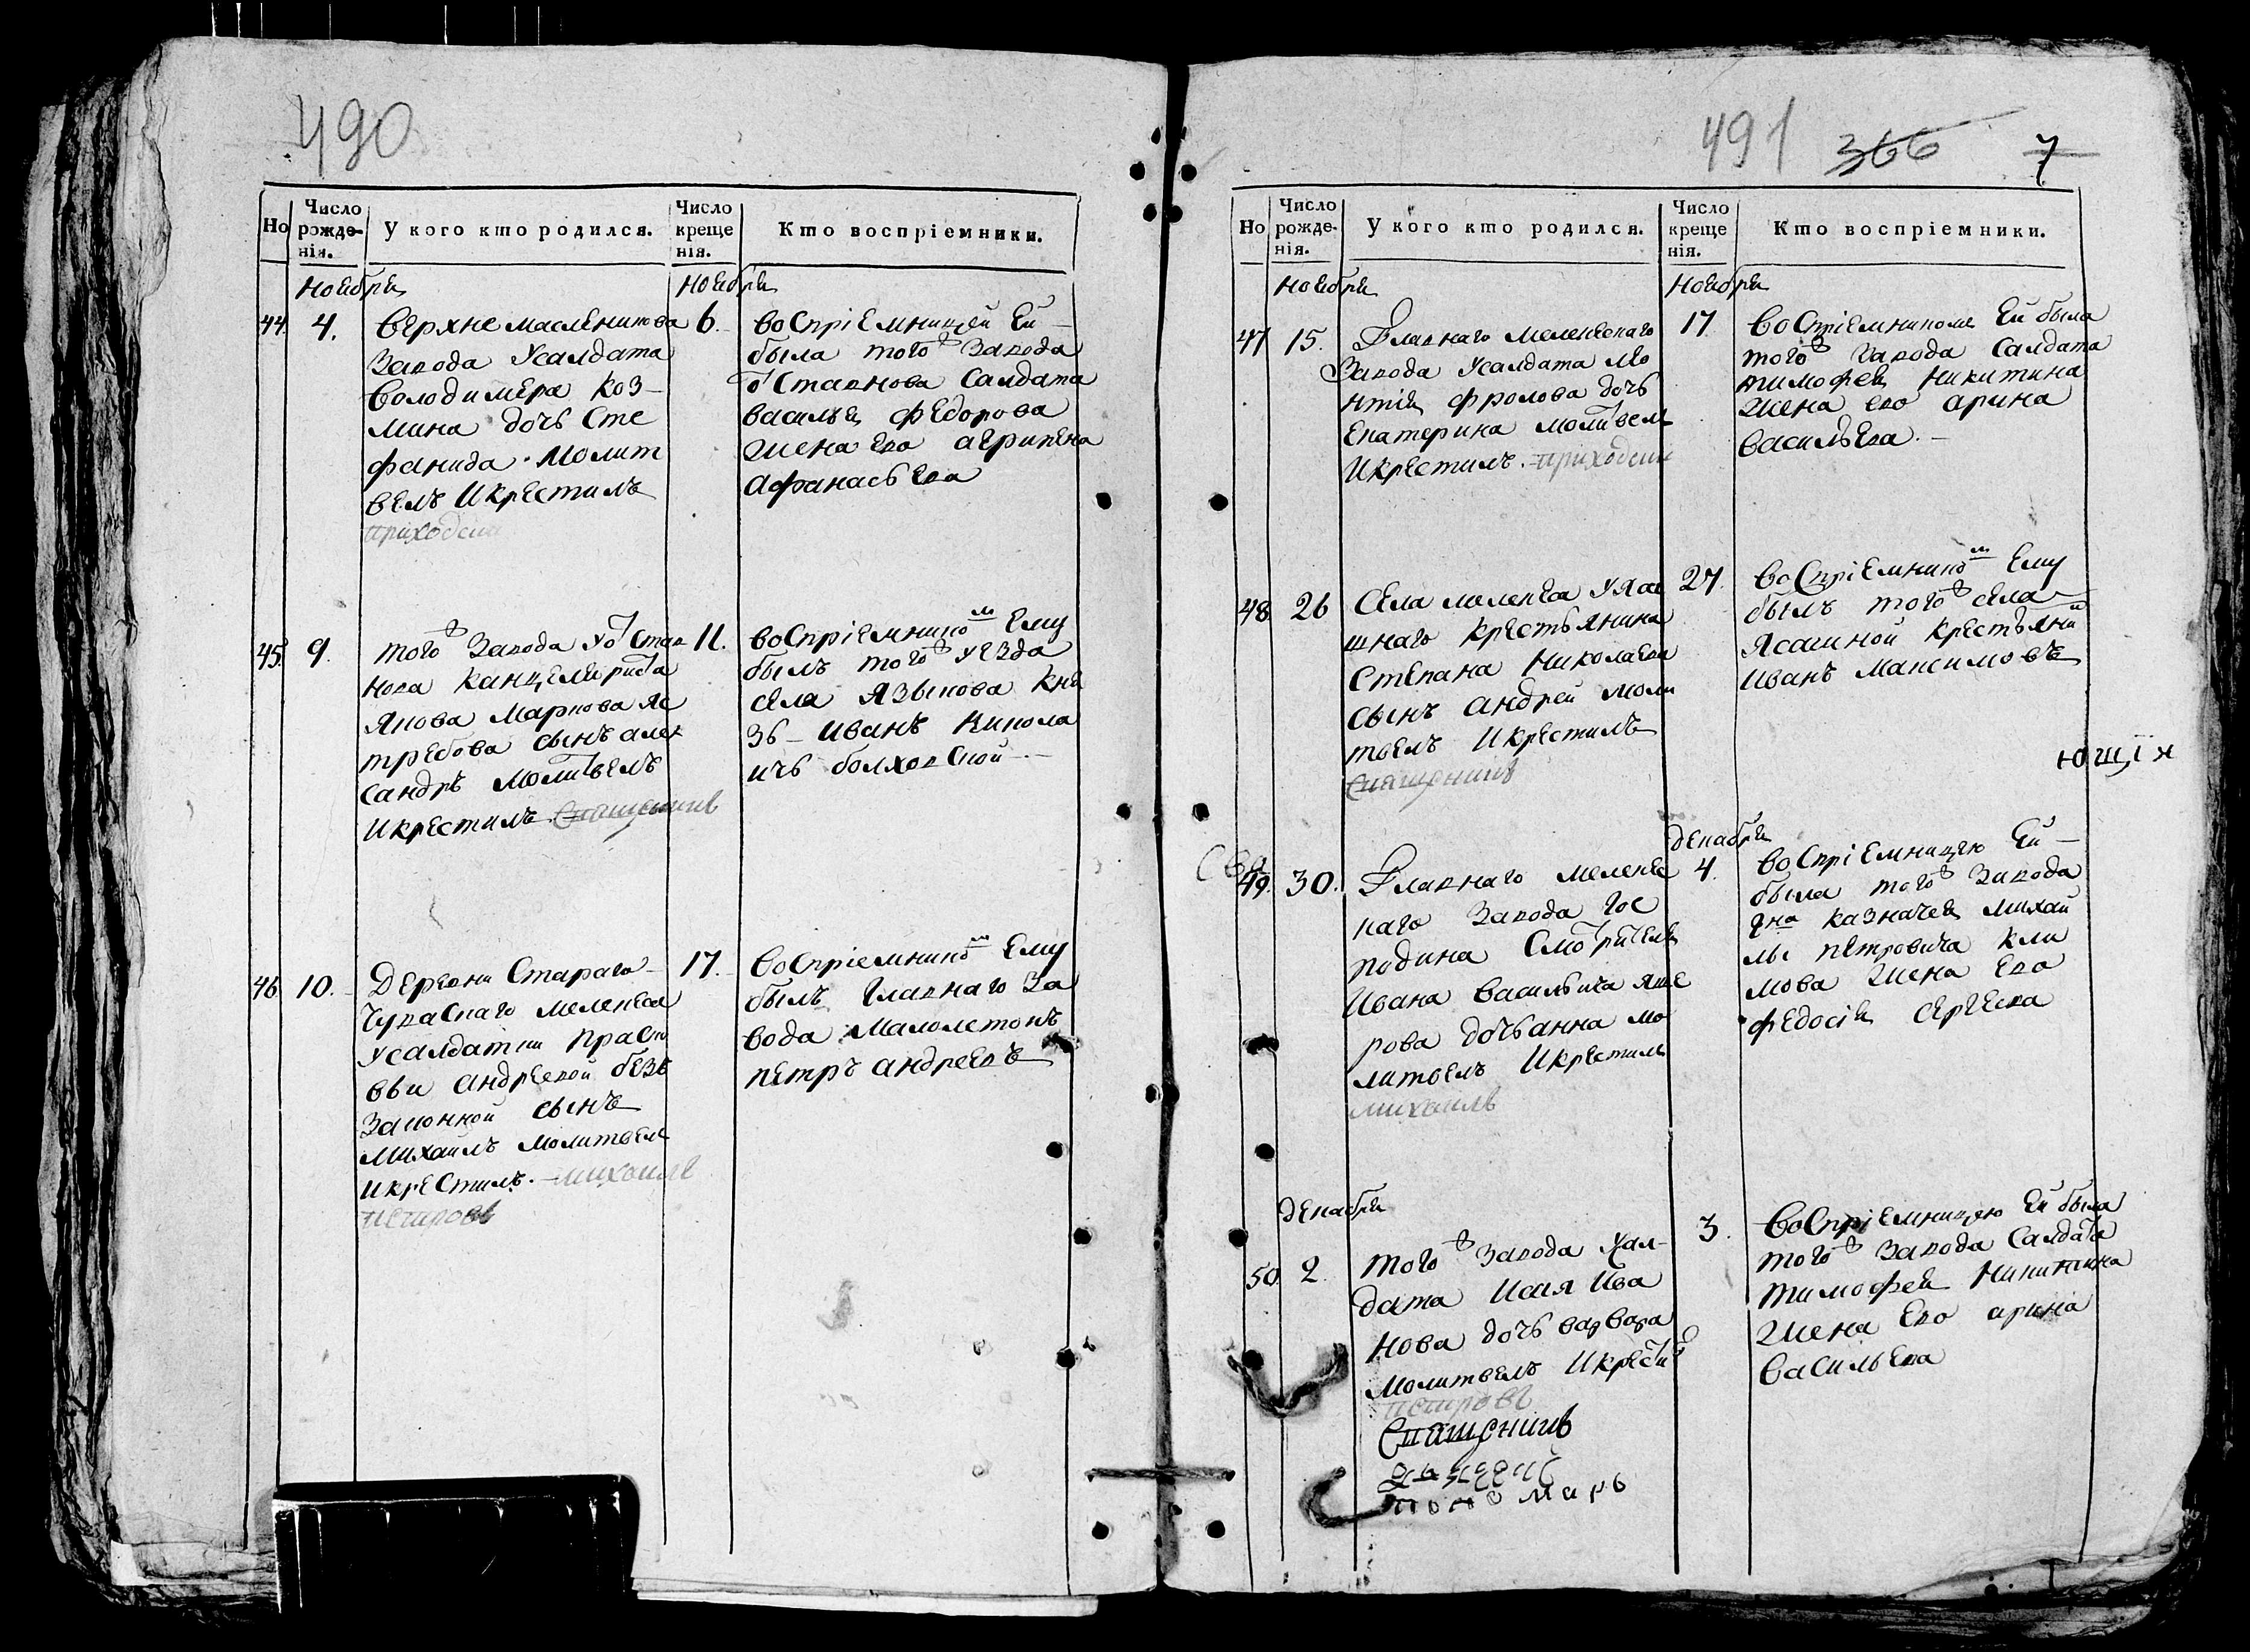 490
Но
Число рожде- нія.
У кого кто родился.
Число креще нія.
Кто воспріемники.
Ноября
Ноября
44. 4.
верхне масленикова
завода Усалдата
володимера коз-
мина дочь Сте
фанида. Молит
велъ Икрестилъ
приходски
6.
воСпріемницей Ей -
была того завода
отставнова Салдата
васильи федорова
жена Ево
Афанасьева
45. 9.
того завода Уотстав
нова канцеляриста
Якова Маркова яс
требова сынъ алек
сандръ молитвелъ
Икрестилъ. Священникъ
11.
воСпріемником Ему
былъ того уезда
села Языкова кня
зь - Иванъ
ичь болховской -
46 10.
Деревни Стараго-
Чуваскаго мелекеса
Усалдатки праско
вьи андреевой безъ
законной сынъ
михаилъ молитвелъ
икреСтилъ. - михаилъ
петровъ
17.
воСпріемником Ему
былъ главнаго за
вода малолетокъ
петръ андреевъ
491 366 7
Но
Число рожде- нія.
У кого кто родился.
Число креще нія.
Кто воспріемники.
Ноября
Ноября
47 15.
Главнаго мелекескаго
завода Усалдата ле
нтія фролова дочь
Екатерина молитвелъ
Икрестилъ. приходски
17.
воСпріемникомъ Ей была
того завода салдата
тимофея никитина
жена ево арина
васильева. -
48. 26
Села мелекеса Уяса
шнаго крестьянина
степана николаева
сынъ андрей моли
твелъ Икрестилъ
Священникъ
27.
воСпріемником Ему
былъ того села
Ясашной крестьяни
иванъ максимовъ
ющїя
Декабря
49. 30.
Главнаго мелекес
каго завода гос
подина смотрителя
Ивана васильича яше
рова дочь анна мо
литвелъ Икрестилъ
михаилъ
4.
воСпріемницею Ей -
была того завода
гна казначея михай
лы петровича кли
мова жена Ева
федосія сергеева
Декабря
50. 2.
того завода Усал-
дата Исая Ива
нова дочь варвара
молитвелъ Икрести
петровъ
Священникъ
пономарь
3.
воСпріемницею Ей была
того завода Салдата
тимофея никитина
жена Ево арина
васильева